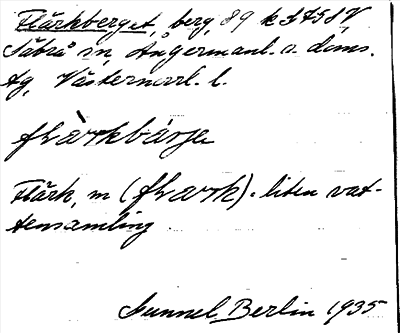 Flärkberget, berg, 89 k SASV,
Säbrå sn, Ångermanl. s. doms.
tg, Västernorrl. l.
flärkbárje
Flärk, m (flark) - liten vat-
tensamling
Gunnel Berlin 1935